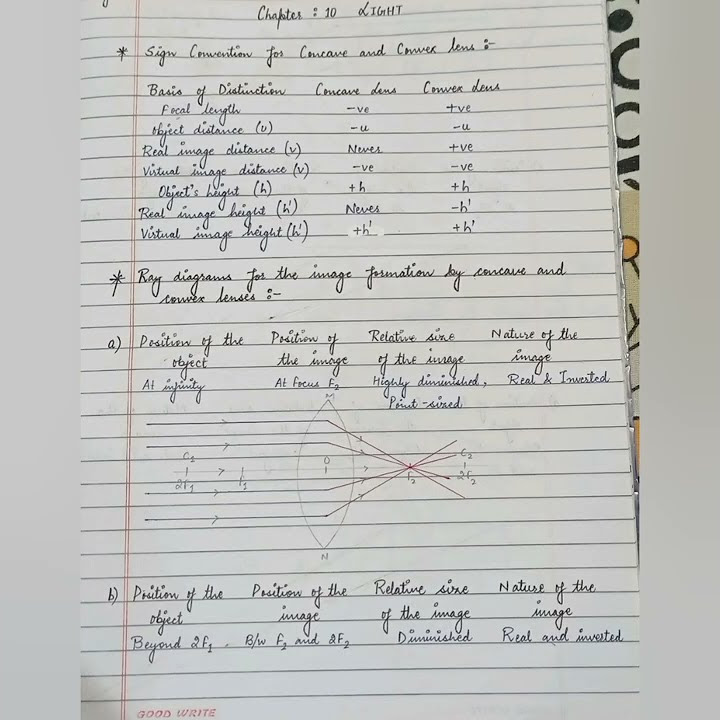 Chapter : 10 LIGHT
* Sign Convention for Concave and Convex lens :-
Basis of Distinction Concave Lens Convex Lens
Focal length -ve +ve
Object distance (u) -u -u
Real image distance (v) Never +ve
Virtual image distance (v) -ve -ve
Object's height (h) +h +h
Real image height (h') Never -h'
Virtual image height (h') +h' +h'
* Ray diagrams for the image formation by concave and
convex lenses :-
a) Position of the Position of Relative size Nature of the
object the image of the image image
At infinity At Focus F2 Highly diminished, Real & Inverted
Point-sized
M
C1 O C2
2F1 F1 F2 2F2
N
b) Position of the Position of the Relative size Nature of the
object image of the image image
Beyond 2F1 . B/w F2 and 2F2 Diminished Real and inverted
GOOD WRITE